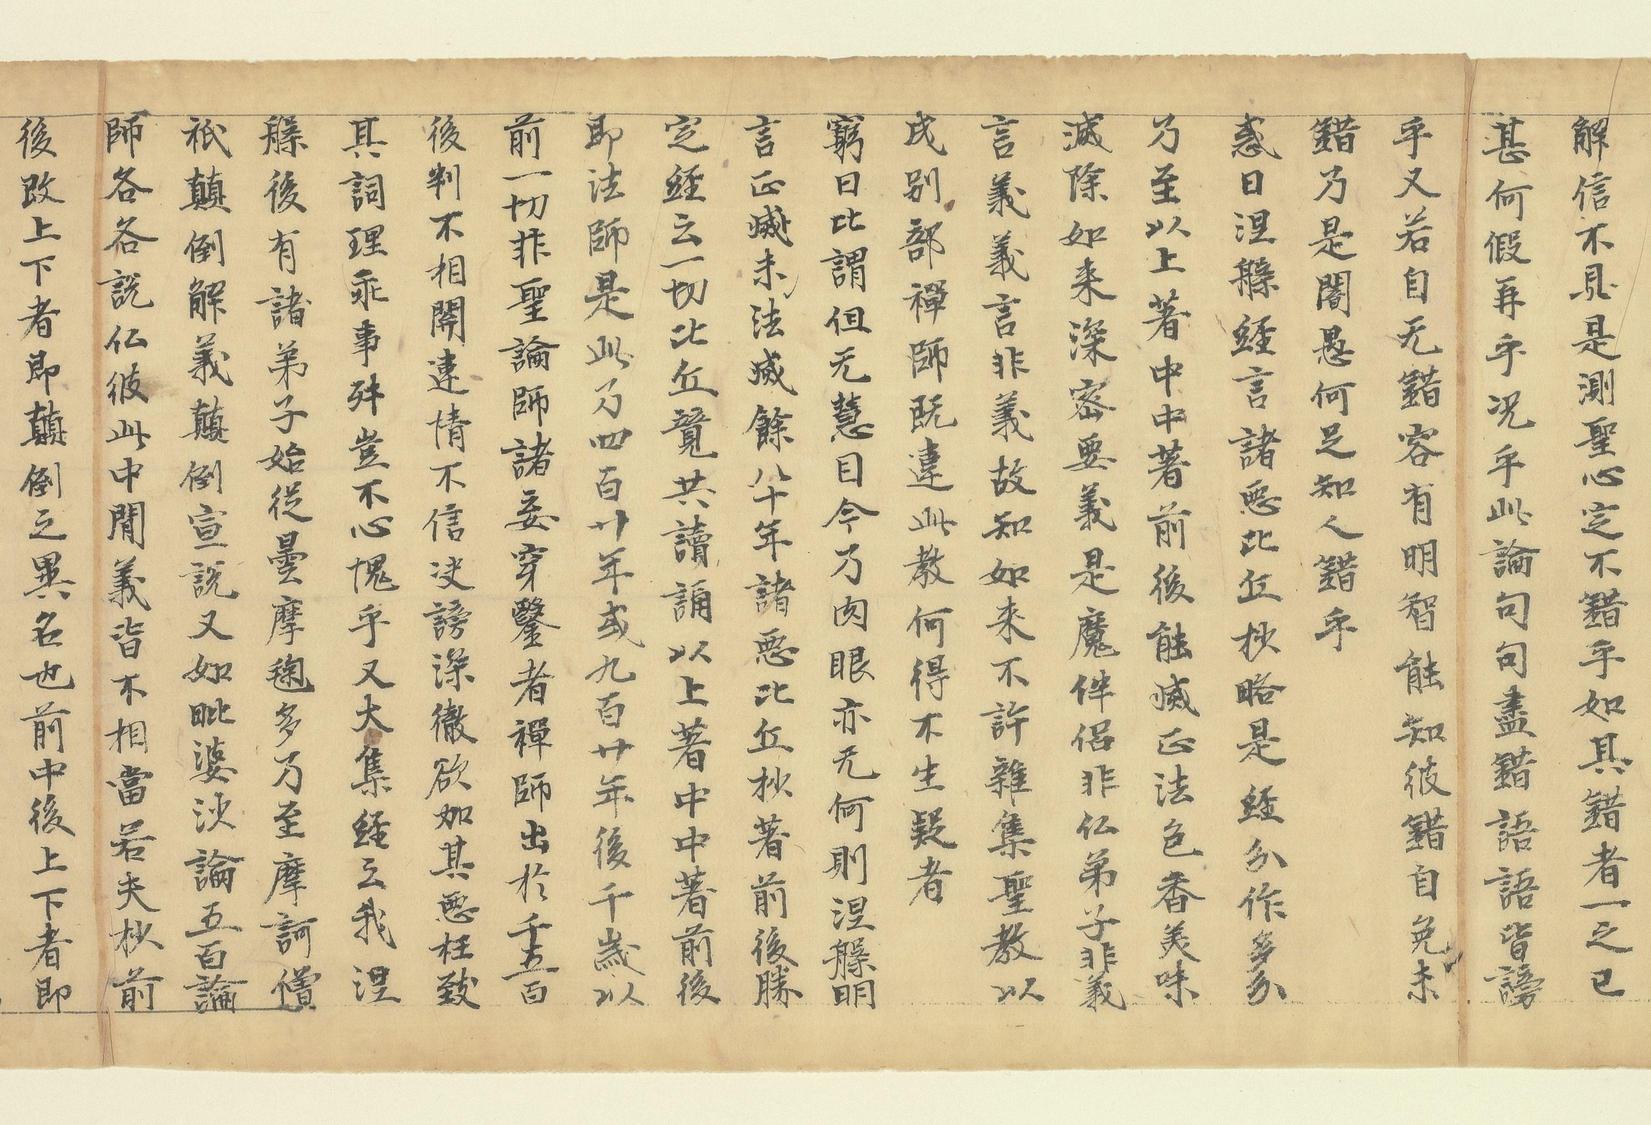 解信不具是測聖心定不錯乎如其錯者一之已
甚何假再乎况乎此論句句盡錯語語皆謗
乎又若自无錯容有明智能知彼錯自免未
錯乃是闇愚何足知人錯乎
惑曰涅槃經言諸惡比丘抄略是經分作多分
乃至以上著中中著前後能滅正法色香美味
滅除如来深密要義是魔伴侣非仏弟子非義
言義義言非義故知如来不許雜集聖教以
成別部禪師既違此教何得不生疑者
窮曰比謂但无慧目今乃肉眼亦无何則涅槃明
言正滅未法滅餘八十年諸惡比丘抄著前後勝
定經云一切比丘競共讀誦以上著中中著前後
即法師是此乃四百廿年或九百廿年後千歲以
前一切非聖論師諸妄穿鑿者禪師出於千五百
後判不相關連情不信決謗深徹欲加其惡枉致
其詞理乖事舛豈不心愧乎又大集經云我涅
槃後有諸弟子始從曇摩毱多乃至摩訶僧
祇顛倒解義顛倒宣說又如毗婆沙論五百論
師各各說仏彼此中間義皆不相當若夫抄前
後改上下者即顛倒之異名也前中後上下者即